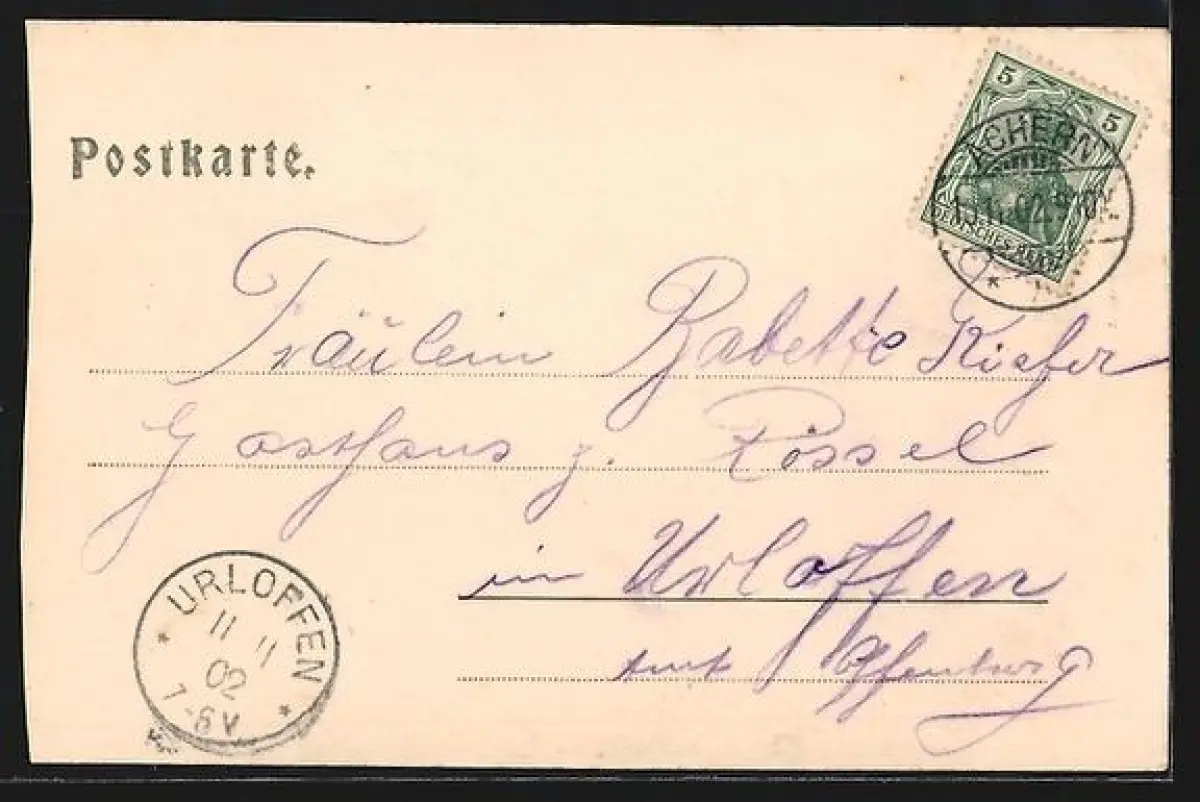 Postkarte.
5 5
ACHERN
DEUTSCHES REICH
Fräulein Babette Kiefer
Gasthaus z. Rössel
in Urloffen
Amt Offenburg
URLOFFEN
11 11
02
7-8V